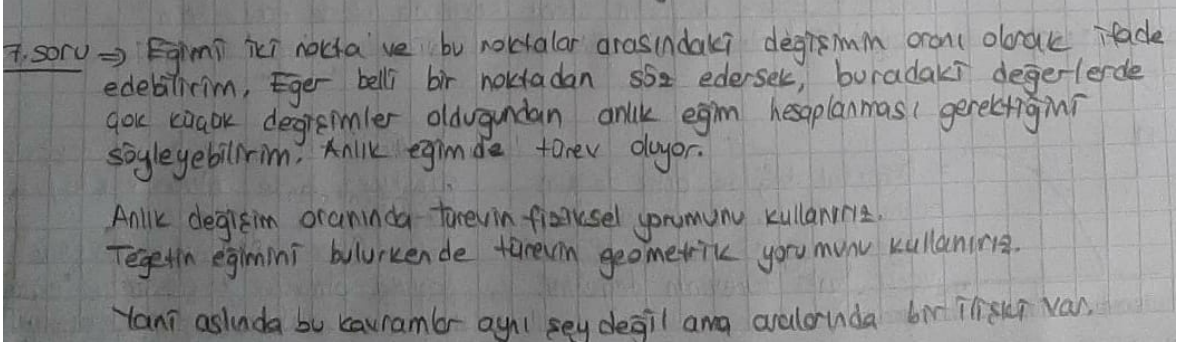 7. soru => Eğimi iki nokta ve bu noktalar arasındaki değişimin oranı olarak ifade
edebilirim, Eğer belli bir noktadan söz edersek, buradaki değerlerde
çok küçük değişimler olduğundan anlık eğim hesaplanması gerektiğini
söyleyebilirim. Anlık eğimde türev oluyor.
Anlık değişim oranında türevin fiziksel yorumunu kullanırız.
Teğetin eğimini bulurkende türevin geometrik yorumunu kullanırız.
Yani aslında bu kavramlar aynı şey değil ama aralarında bir ilişki var.